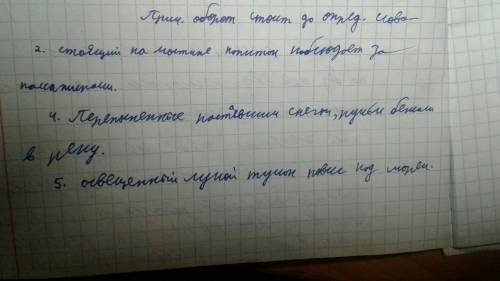 Прич. оборот стоит до опред. слова
2. стоящий на мостике капитан наблюдает за
пассажирами.
4. Переполненные растаевшим снегом, ручьи бежали
в реку.
5. освещенный луной туман повис над морем.